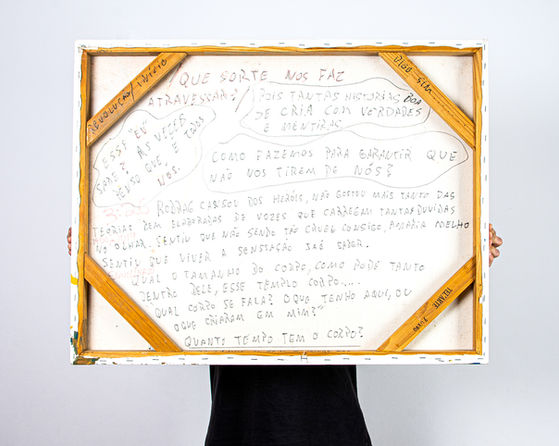 REVOLUÇÃO/INÍCIO
QUE SORTE NOS FAZ
ATRAVESSAR?
POIS TANTAS HISTÓRIAS BOA
SE CRIA COM VERDADES
E MENTIRAS
ESSE "EU"
SOAS? ÀS VEZES
TENTO QUE, É TANS
NÓS.
COMO FAZEMOS PARA GARANTIR QUE
NÃO NOS TIREM DE NÓS?
CANSOU DOS HERÓIS, NÃO GOSTOU MAIS TANTO DAS
TEORIAS BEM ELABORADAS DE VOZES QUE CARREGAM TANTAS DUVIDAS
NO OLHAR. SENTIU QUE NÃO SENDO TÃO CRUEL CONSIGO, PODERIA
SENTIU QUE VIVER A SENSAÇÃO SAÉ SABER.
QUAL O TAMANHO DO CORPO, COMO PODE TANTO
DENTRO DELE, ESSE TEMPLO CORPO...
QUAL CORPO SE FALA? O QUE TENHO AQUI, OU
O QUE CRIARAM EM MIM?
QUANTO TEMPO TEM O CORPO?